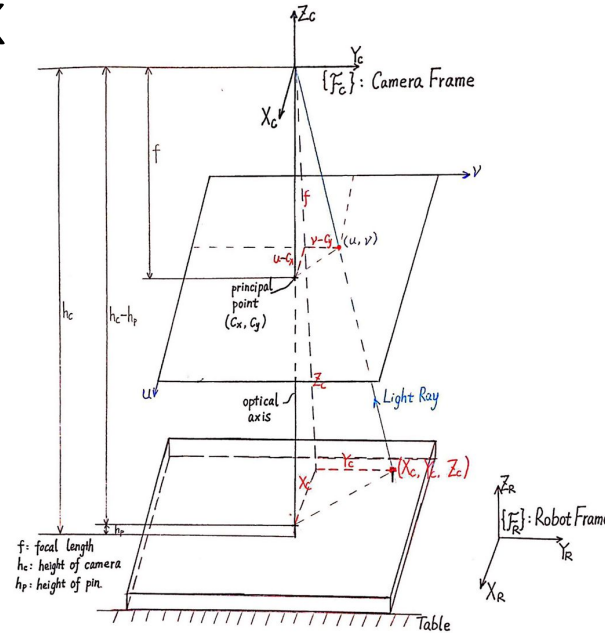 Z_C
Y_C
{F_C}: Camera Frame
X_C
f
f
v
v-C_y
(u, v)
u-C_x
principal
point
(C_x, C_y)
h_c
h_c-h_p
u
Z_c
optical
axis
Light Ray
Y_c
(X_c, Y_c, Z_c)
X_c
h_p
Z_R
{F_R}: Robot Frame
Y_R
X_R
f: focal length
h_c: height of camera
h_p: height of pin
Table